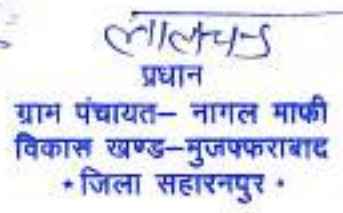 लालचन्द
प्रधान
ग्राम पंचायत– नागल माफी
विकास खण्ड–मुजफ्फराबाद
• जिला सहारनपुर •